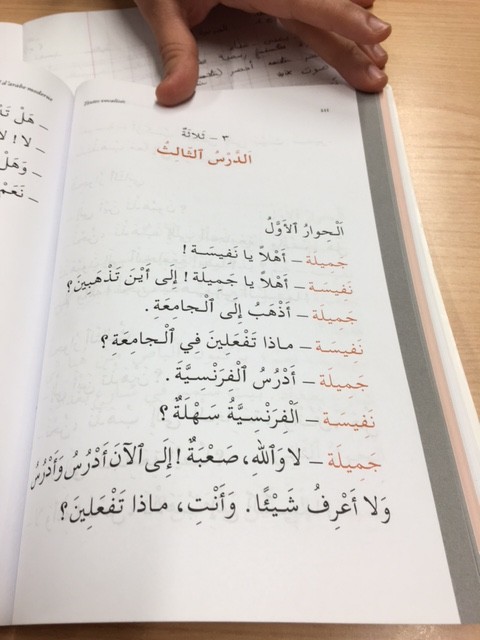 ٣ – ثَلاثَةٌ
اَلدَّرْسُ ٱلثَّالِثُ
اَلْحِوارُ ٱلأَوَّلُ
جَمِيلَة – أَهْلاً يا نَفِيسَة !
نَفِيسَة – أَهْلاً يا جَمِيلَة ! إِلَى أَيْنَ تَذْهَبِينَ؟
جَمِيلَة – أَذْهَبُ إِلَى ٱلْجامِعَةِ .
نَفِيسَة – ماذا تَفْعَلِينَ فِي ٱلْجامِعَةِ ؟
جَمِيلَة – أَدْرُسُ ٱلْفِرَنْسِيَّةَ .
نَفِيسَة – اَلْفِرَنْسِيَّةُ سَهْلَةٌ ؟
جَمِيلَة – لا وَٱللهِ، صَعْبَةٌ ! إِلَى ٱلآنَ أَدْرُسُ وَأَدْرُسُ
وَلا أَعْرِفُ شَيْئًا . وَأَنْتِ، ماذا تَفْعَلِينَ؟
– هَلْ
– لا ! لا
– وَهَلْ
– نَعَمْ